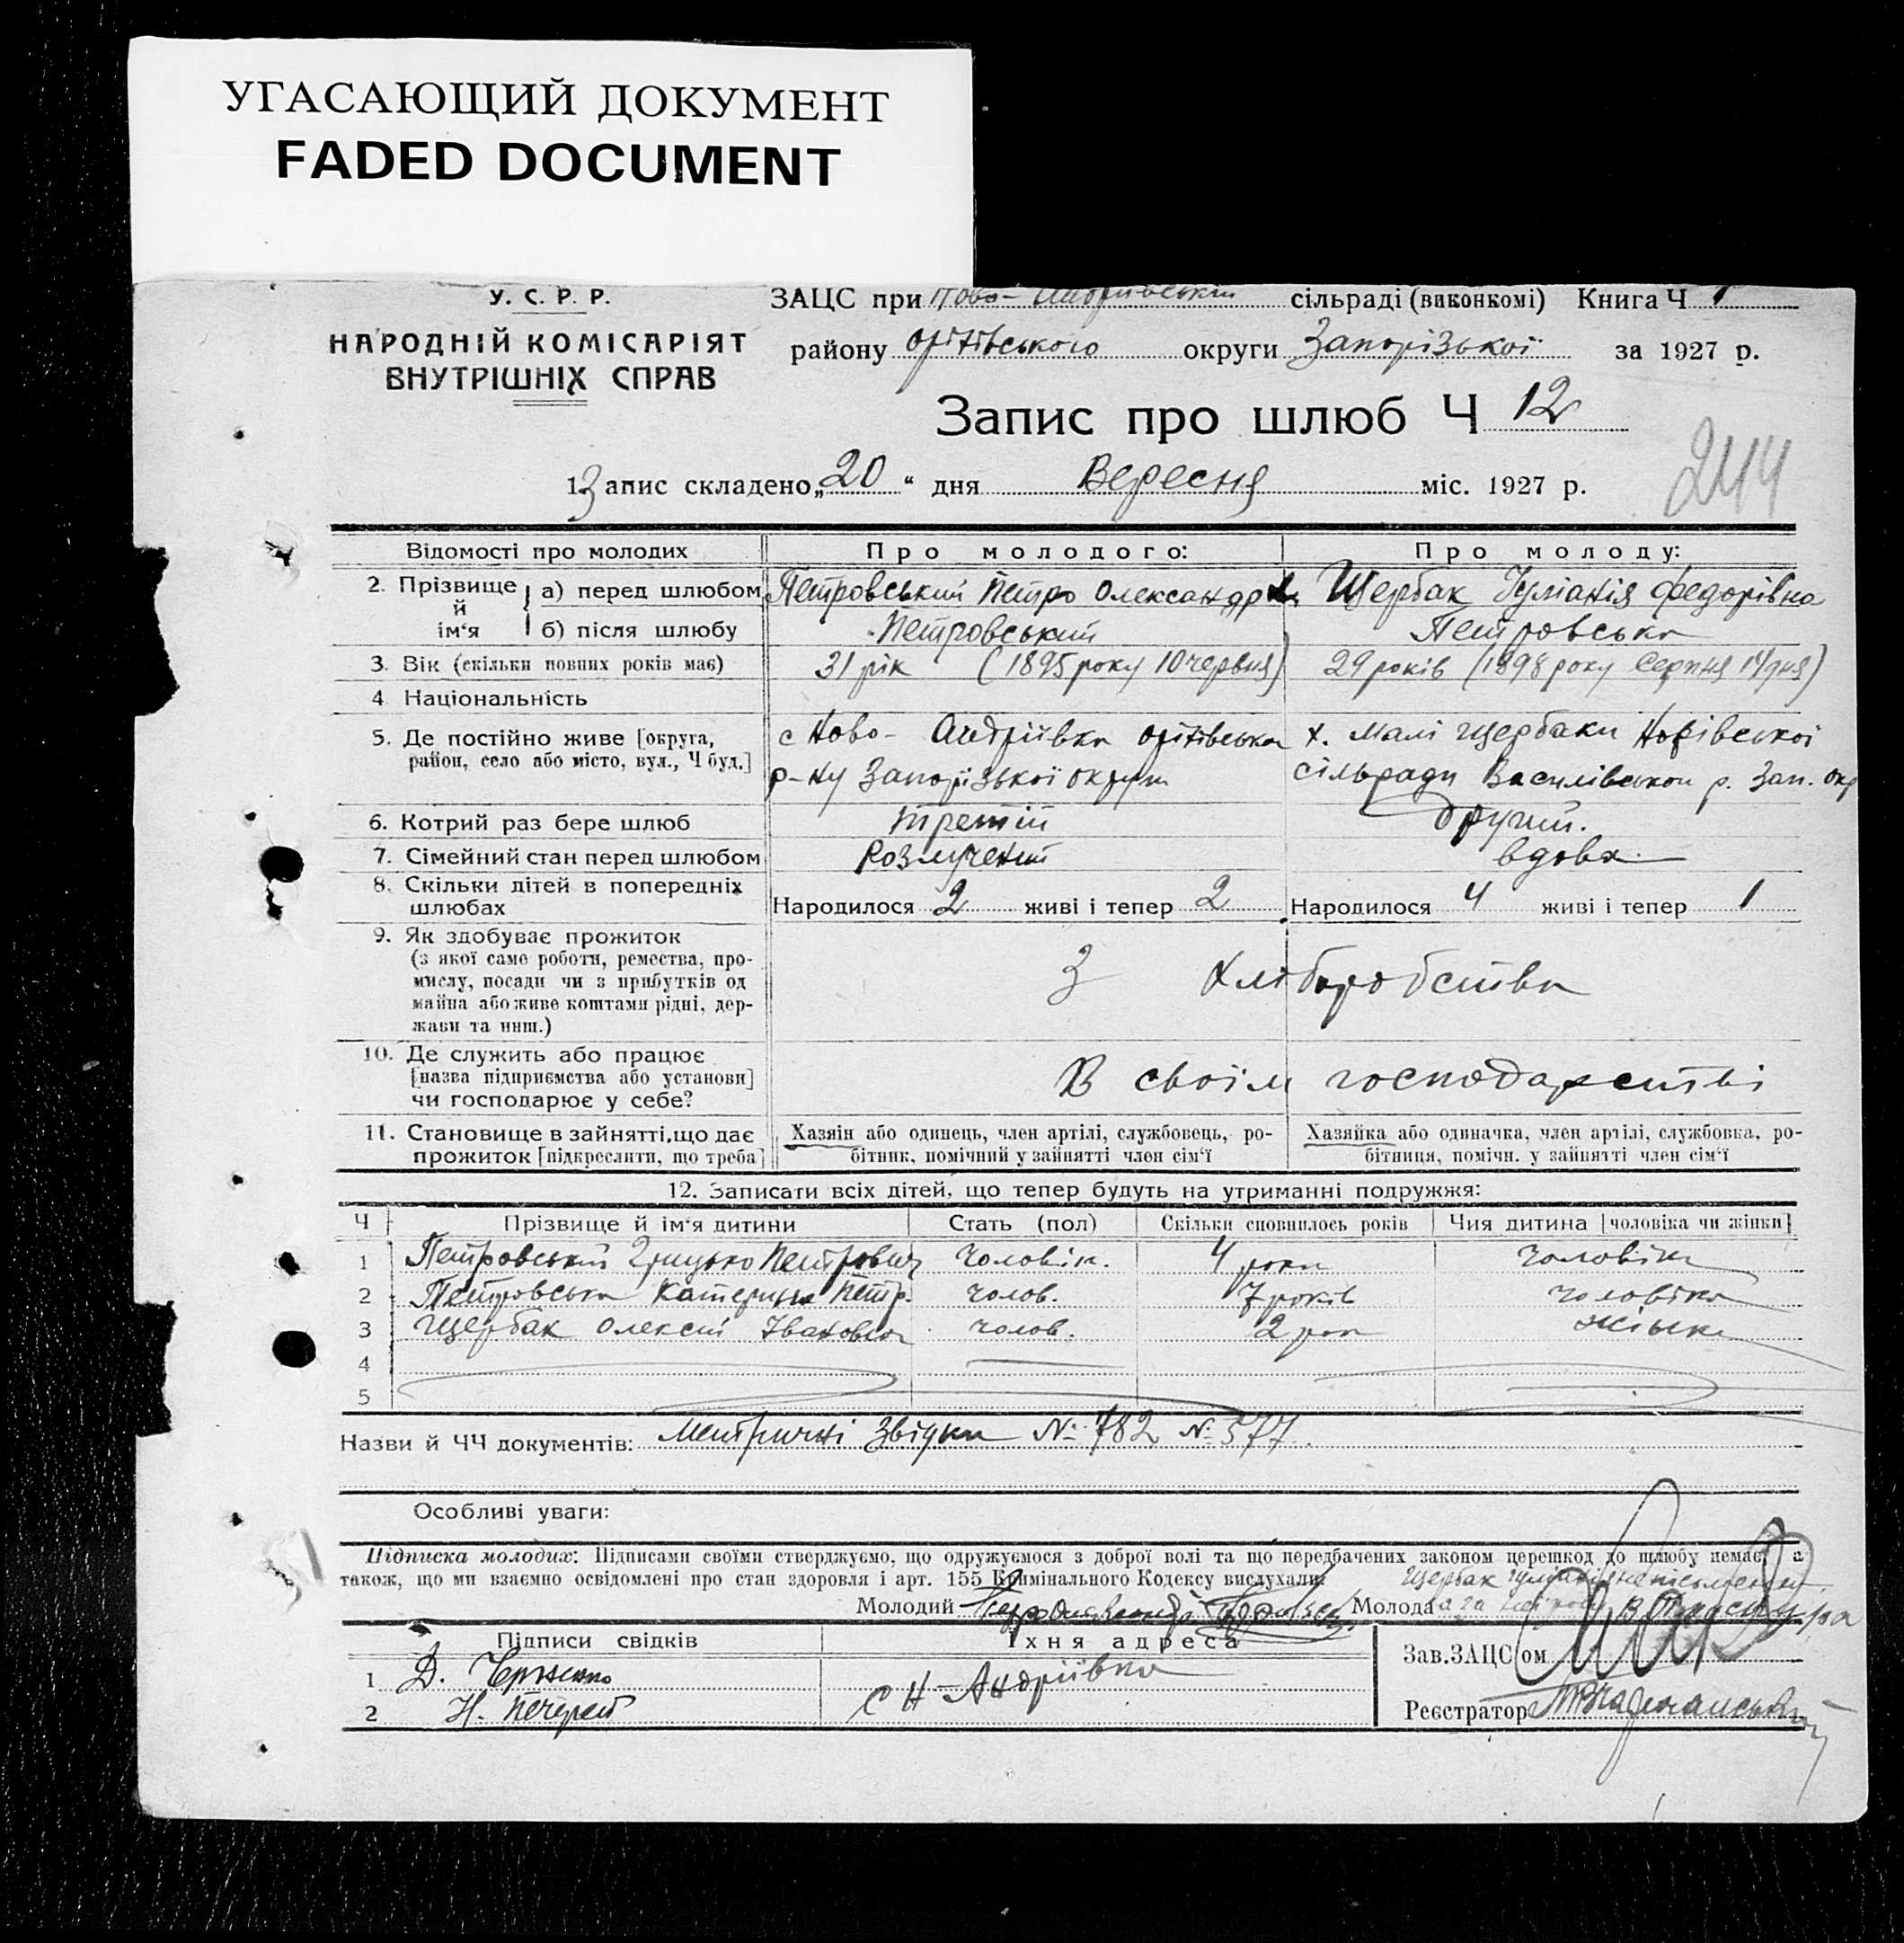 УГАСАЮЩИЙ ДОКУМЕНТ
FADED DOCUMENT
У. С. Р. Р.
НАРОДНІЙ КОМІСАРІЯТ
ВНУТРІШНІХ СПРАВ
ЗАЦС при Ново-Андріївській сільраді (виконкомі) Книга Ч 1
району Оріхівського округи Запорізької за 1927 р.
Запис про шлюб Ч 12
244
1 Запис складено „20“ дня Вересня міс. 1927 р.
Відомості про молодих Про молодого: Про молоду:
2. Прізвище й ім‘я а) перед шлюбом Петровський Петро Олександр Щербак Іуліанія Федорівна
б) після шлюбу Петровський Петровська
3. Вік (скільки повних років має) 31 рік (1895 року 10 червня) 29 років (1898 року Серпня 14 дня)
4 Національність
5. Де постійно живе [округа, район, село або місто, вул., Ч буд.]
с Ново-Андріївка Оріхівськ
р-ну Запорізької округи
х. Малі Щербаки
сільради Василівськои р. Зап. окр
6. Котрий раз бере шлюб третій Другий.
7. Сімейний стан перед шлюбом Розлучений вдова
8. Скільки дітей в попередніх шлюбах Народилося 2 живі і тепер 2 Народилося 4 живі і тепер 1
9. Як здобуває прожиток
(з якої саме роботи, ремества, про-
мислу, посади чи з прибутків од
майна або живе коштами рідні, дер-
жави та инш.)
З хліборобства
10. Де служить або працює
[назва підприємства або установи]
чи господарює у себе?
В своїм господарстві
11. Становище в зайнятті, що дає
прожиток [підкреслити, що треба]
Хазяін або одинець, член артілі, службовець, ро-
бітник, помічний у зайнятті член сім‘ї
Хазяйка або одиначка, член артілі, службовка, ро-
бітниця, помічн. у зайнятті член сім‘ї
12. Записати всіх дітей, що тепер будуть на утриманні подружжя:
Ч Прізвище й ім‘я дитини Стать (пол) Скільки сповнилось років Чия дитина [чоловіка чи жінки]
1 Петровський Грицько Петрович чоловік. 4 роки чоловіка
2 Петровська Катерина Петр. чолов. 7 років чоловіка
3 Щербак Олексій Іванович чолов. 2 рок жінки
4
5
Назви й ЧЧ документів: Метричні Звідки № 782 № 577
Особливі уваги:
Підписка молодих: Підписами своїми стверджуємо, що одружуємося з доброї волі та що передбачених законом перешкод до шлюбу немає, а
також, що ми взаємно освідомлені про стан здоровля і арт. 155 Кримінального Кодексу вислухали.
Щербак
Молодий Молода
Підписи свідків Їхня адреса
1 Д.
2 Н.
с Н-Андріївка
Зав. ЗАЦСом
Реєстратор